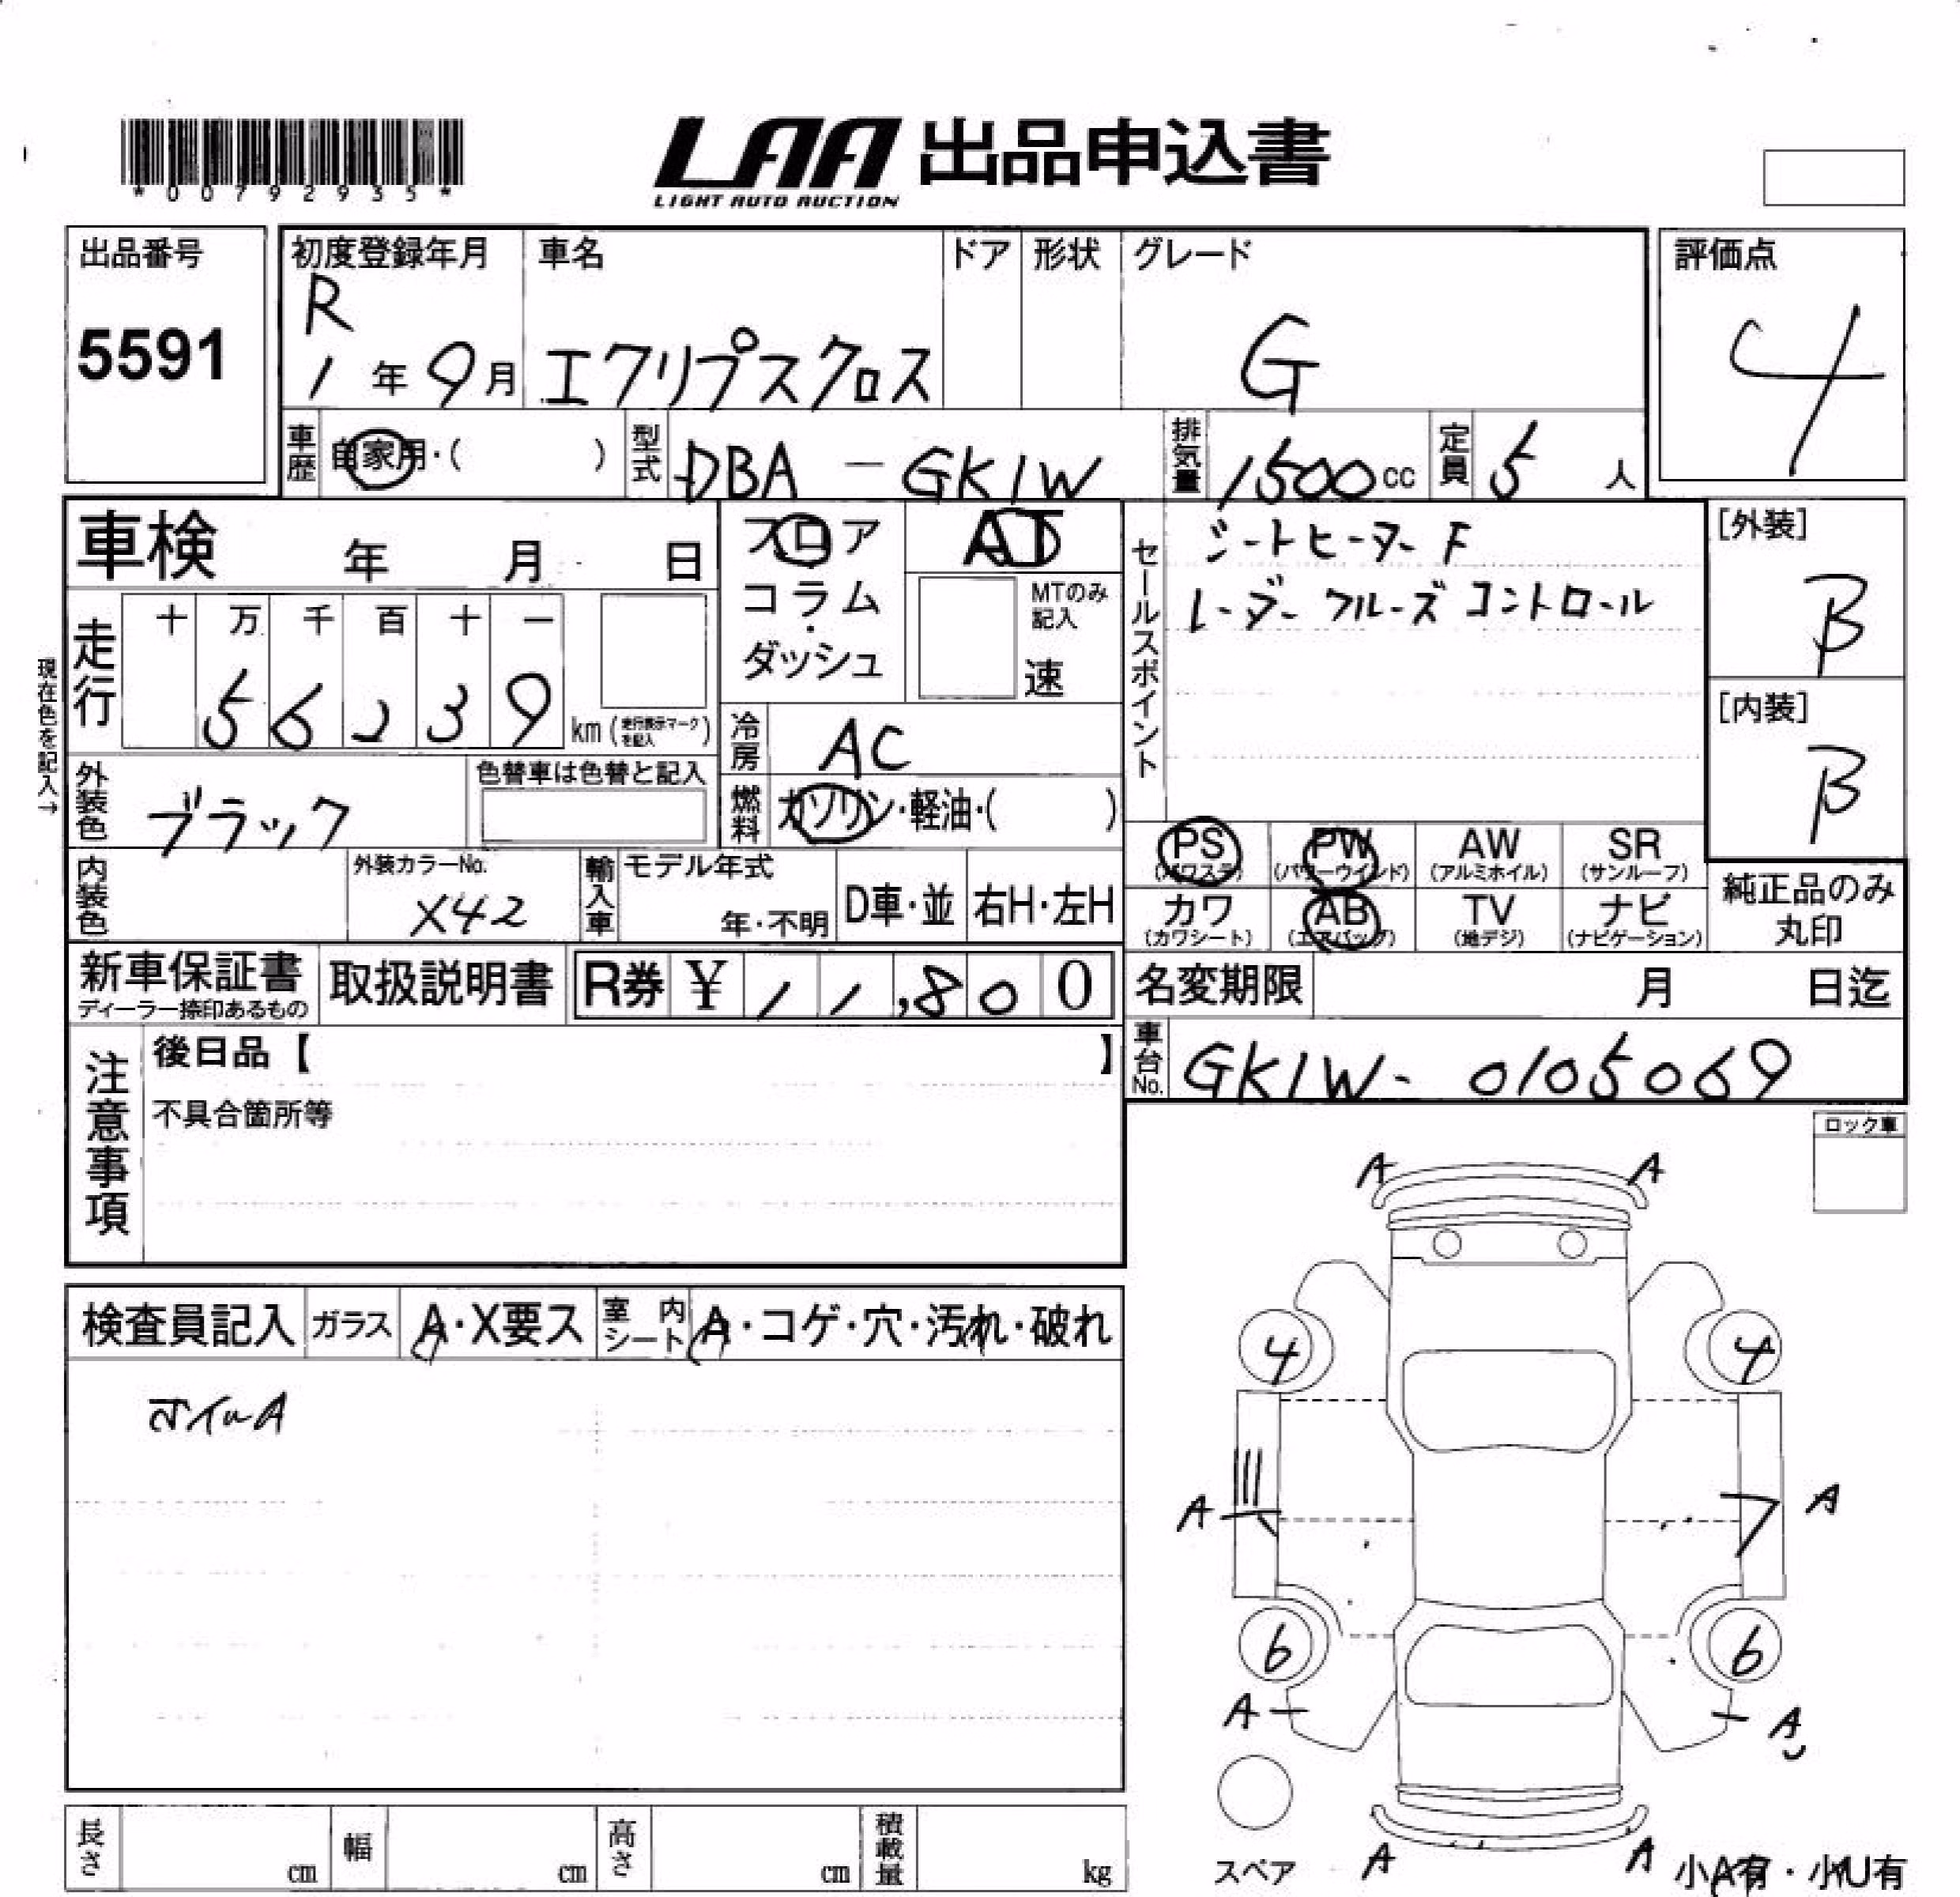 *00792935*
LAA 出品申込書
LIGHT AUTO AUCTION
出品番号
5591
初度登録年月
R
1年9月
車名
エクリプスクロス
ドア
形状
グレード
G
評価点
4
車歴
自家用・( )
型式
DBA-GK1W
排気量
1500cc
定員
5人
車検 年 月 日
フロア
コラム
・
ダッシュ
AT
MTのみ
記入
速
セールスポイント
シートヒーターF
レーダークルーズコントロール
[外装]
B
[内装]
B
現在色を記入→
走行
十 万 千 百 十 一
5 6 2 3 9
km (走行表示マークを記入)
冷房
AC
燃料
ガソリン・軽油・( )
外装色
ブラック
色替車は色替と記入
内装色
外装カラーNo.
X42
輸入車
モデル年式
年・不明
D車・並
右H・左H
PS
(パワステ)
PW
(パワーウインド)
AW
(アルミホイル)
SR
(サンルーフ)
カワ
(カワシート)
AB
(エアバッグ)
TV
(地デジ)
ナビ
(ナビゲーション)
純正品のみ
丸印
新車保証書
ディーラー捺印あるもの
取扱説明書
R券 ¥ 11,800
名変期限 月 日迄
車台No.
GK1W-0105069
注意事項
後日品【 】
不具合箇所等
ロック車
検査員記入
ガラス
A・X要ス
室内シート
A・コゲ・穴・汚れ・破れ
ホイルA
A A
4 4
A A
6 6
A A
スペア
A A
小A有・小U有
長さ cm
幅 cm
高さ cm
積載量 kg